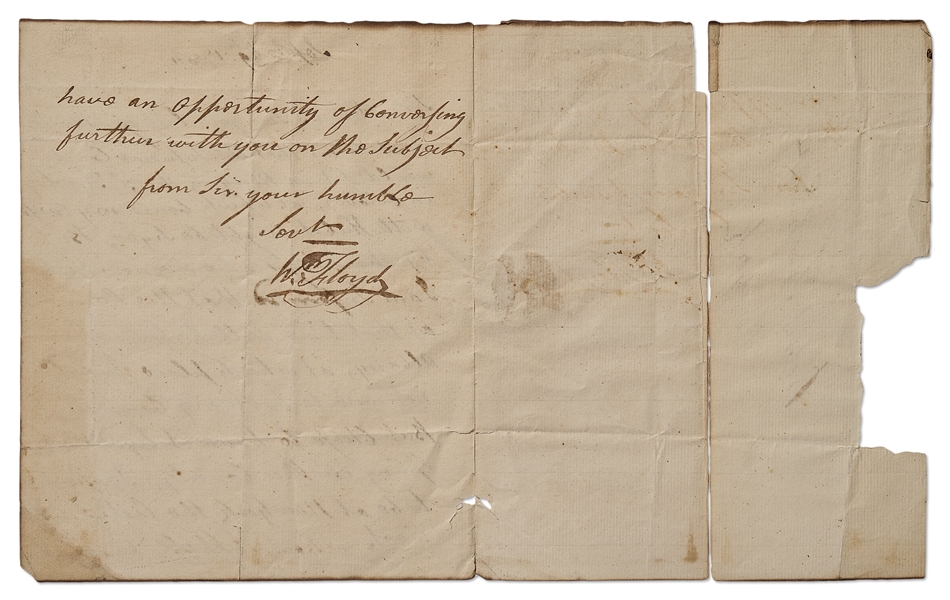 have an opportunity of Conversing
further with you on the Subject
from Sir. your humble
Servt
Wm Floyd